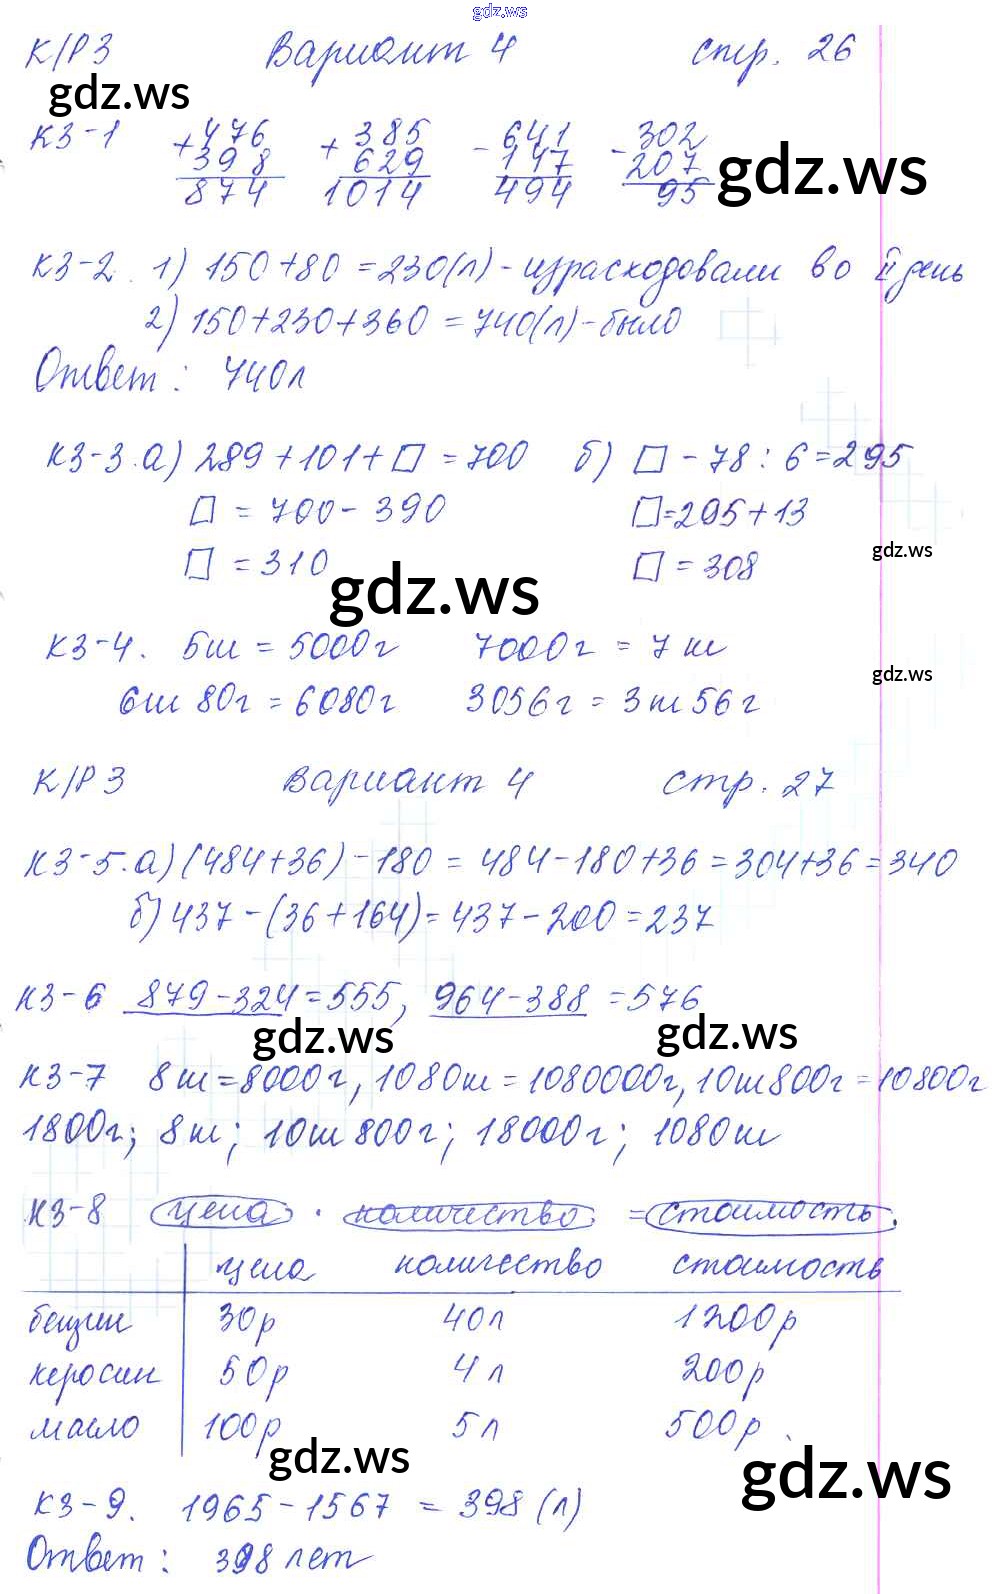 gdz.ws
К/Р 3 Вариант 4 стр. 26
gdz.ws
К3-1 +476 +385 -641 -302
398 629 147 207 gdz.ws
874 1014 494 95
К3-2. 1) 150+80=230(л)-израсходовали во II день
2) 150+230+360=740(л)-было
Ответ: 740л
К3-3.а) 289+101+□=700 б) □-78:6=295
□=700-390 □=295+13
gdz.ws
□=310 □=308
gdz.ws
К3-4. 5т=5000г 7000г=7т
gdz.ws
6т 80г=6080г 3056г=3т 56г
К/Р 3 Вариант 4 стр. 27
К3-5.а)(484+36)-180=484-180+36=304+36=340
б)437-(36+164)=437-200=237
К3-6 879-324=555, 964-388=576
gdz.ws gdz.ws
К3-7 8т=8000г, 1080т=1080000г, 10т800г=10800г
1800г; 8т; 10т 800г; 18000г; 1080т
К3-8 цена · количество = стоимость.
цена количество стоимость
бензин 30р 40л 1200р
керосин 50р 4л 200р
масло 100р 5л 500р.
gdz.ws gdz.ws
К3-9. 1965-1567=398(л)
Ответ: 398 лет